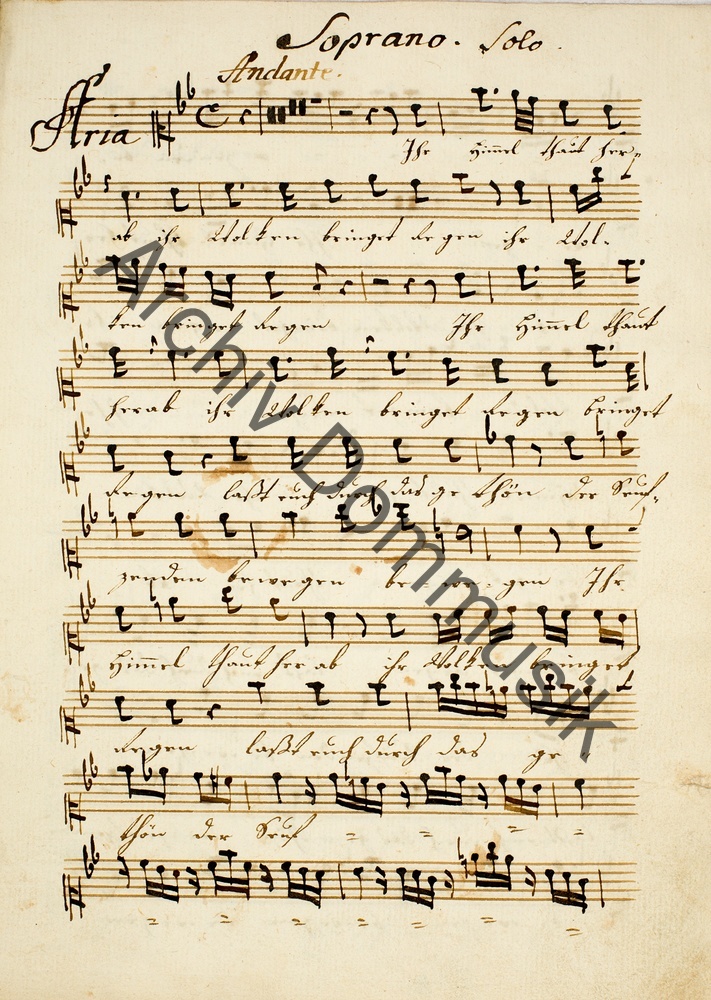 Soprano. Solo.
Andante.
Aria
Ihr Himmel thaut her=
ab ihr Wolken bringet Regen ihr Wol-
ken bringet Regen Ihr Himmel thaut
herab ihr Wolken bringet Regen bringet
Regen laßt euch durch das ge thön der Seuf=
zenden bewegen be- we- gen Ihr
Himmel thaut herab ihr Wolken bringet
Regen laßt euch durch das ge
thön der Seuf = = = =
= = = = = =
Archiv Dommusik